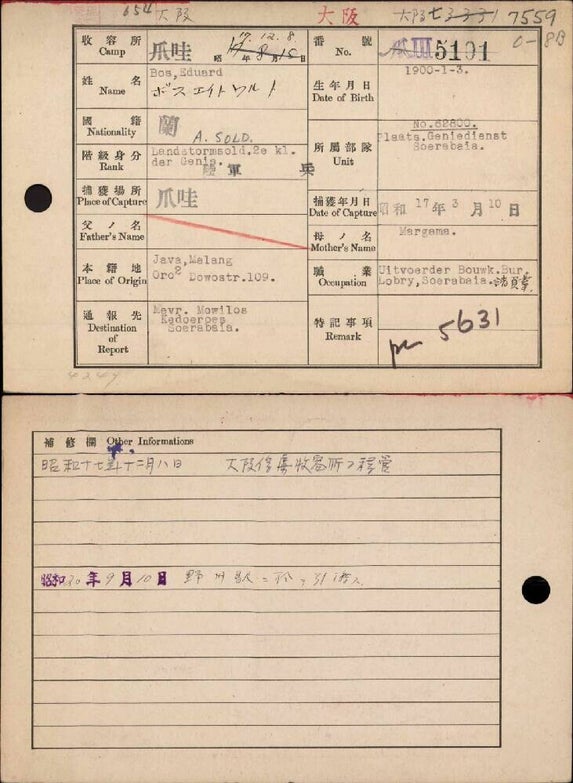 654 大阪 大阪 大阪 七 3-3-31 7559
0-88
收容所 Camp 爪哇 昭 17.12.8
17年8月15日
番號 No. 5191
姓名 Name Bos,Eduard
ボスエイトワルト
生年月日 Date of Birth 1900-1-3.
國籍 Nationality 蘭 A. SOLD.
所屬部隊 Unit No.62800.
Plaats.Geniedienst
Soerabaia.
階級身分 Rank Landstormsold.2e kl.
der Genie. 陸軍 兵
捕獲場所 Place of Capture 爪哇
捕獲年月日 Date of Capture 昭和 17年 3月 10日
父ノ名 Father's Name
母ノ名 Mother's Name Margama.
本籍地 Place of Origin Java,Malang
Oro² Dowostr.109.
職業 Occupation Uitvoerder Bouwk.Bur.
Lobry,Soerabaia. 請負業
通報先 Destination of Report Mevr. Mowilos
Kedoeroes
Soerabaia.
特記事項 Remark 5631
4247
補修欄 Other Informations
昭和十七年十二月八日 大阪俘虜收容所ヨリ移管
昭和20年9月10日